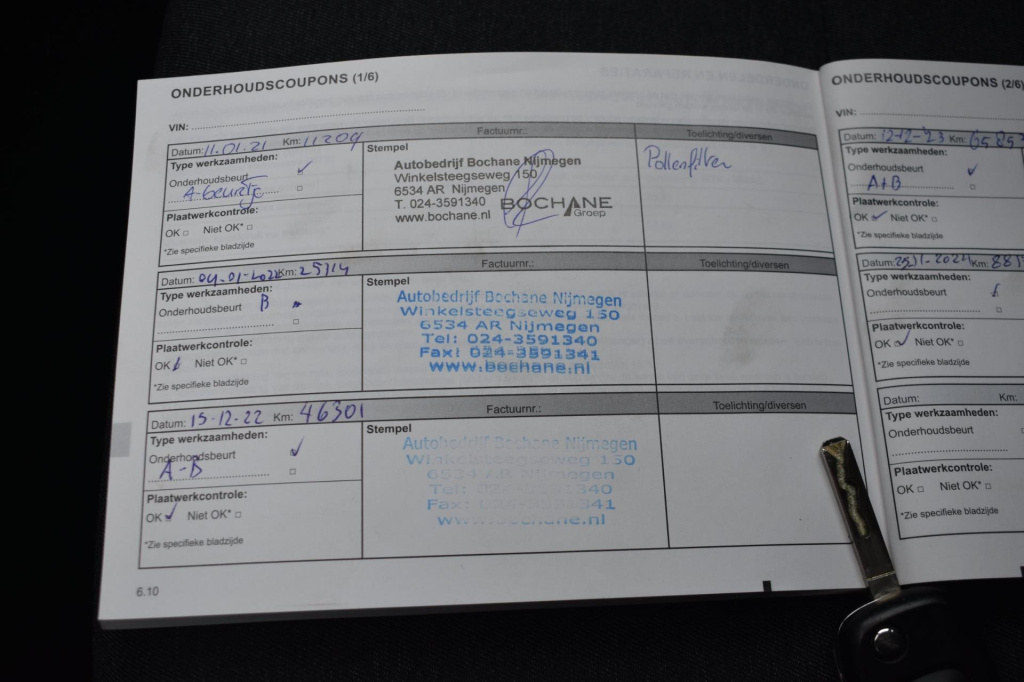 ONDERHOUDSCOUPONS (1/6)
VIN:
Datum: 11.01.21 Km: 11209 Factuurnr.: Toelichting/diversen
Type werkzaamheden:
Onderhoudsbeurt
A-beurtje
Plaatwerkcontrole:
OK Niet OK*
*Zie specifieke bladzijde
Stempel
Autobedrijf Bochane Nijmegen
Winkelsteegseweg 150
6534 AR Nijmegen
T. 024-3591340
www.bochane.nl
BOCHANE
Groep
Pollenfilter
Datum: 04-01-2022 Km: 25714 Factuurnr.: Toelichting/diversen
Type werkzaamheden:
Onderhoudsbeurt B
Plaatwerkcontrole:
OK Niet OK*
*Zie specifieke bladzijde
Stempel
Autobedrijf Bochane Nijmegen
Winkelsteegseweg 150
6534 AR Nijmegen
Tel: 024-3591340
Fax: 024-3591341
www.bochane.nl
Datum: 15-12-22 Km: 46301 Factuurnr.: Toelichting/diversen
Type werkzaamheden:
Onderhoudsbeurt
A-B
Plaatwerkcontrole:
OK Niet OK*
*Zie specifieke bladzijde
Stempel
Autobedrijf Bochane Nijmegen
Winkelsteegseweg 150
6534 AR Nijmegen
Tel: 024-3591340
Fax: 024-3591341
www.bochane.nl
6.10
ONDERHOUDSCOUPONS (2/6)
VIN:
Datum: 12-12-'23 Km: 65857
Type werkzaamheden:
Onderhoudsbeurt
A+B
Plaatwerkcontrole:
OK Niet OK*
*Zie specifieke bladzijde
Datum: Km: 881
Type werkzaamheden:
Onderhoudsbeurt
Plaatwerkcontrole:
OK Niet OK*
*Zie specifieke bladzijde
Datum: Km:
Type werkzaamheden:
Onderhoudsbeurt
Plaatwerkcontrole:
OK Niet OK*
*Zie specifieke bladzijde